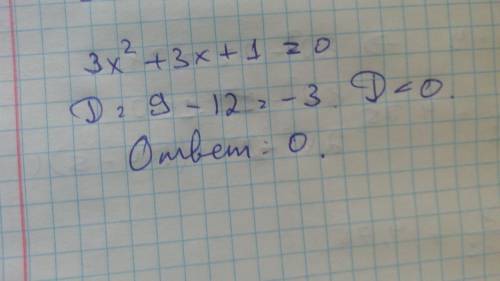 3x² + 3x + 1 = 0
D = 9 - 12 = -3. D < 0.
Ответ: 0.